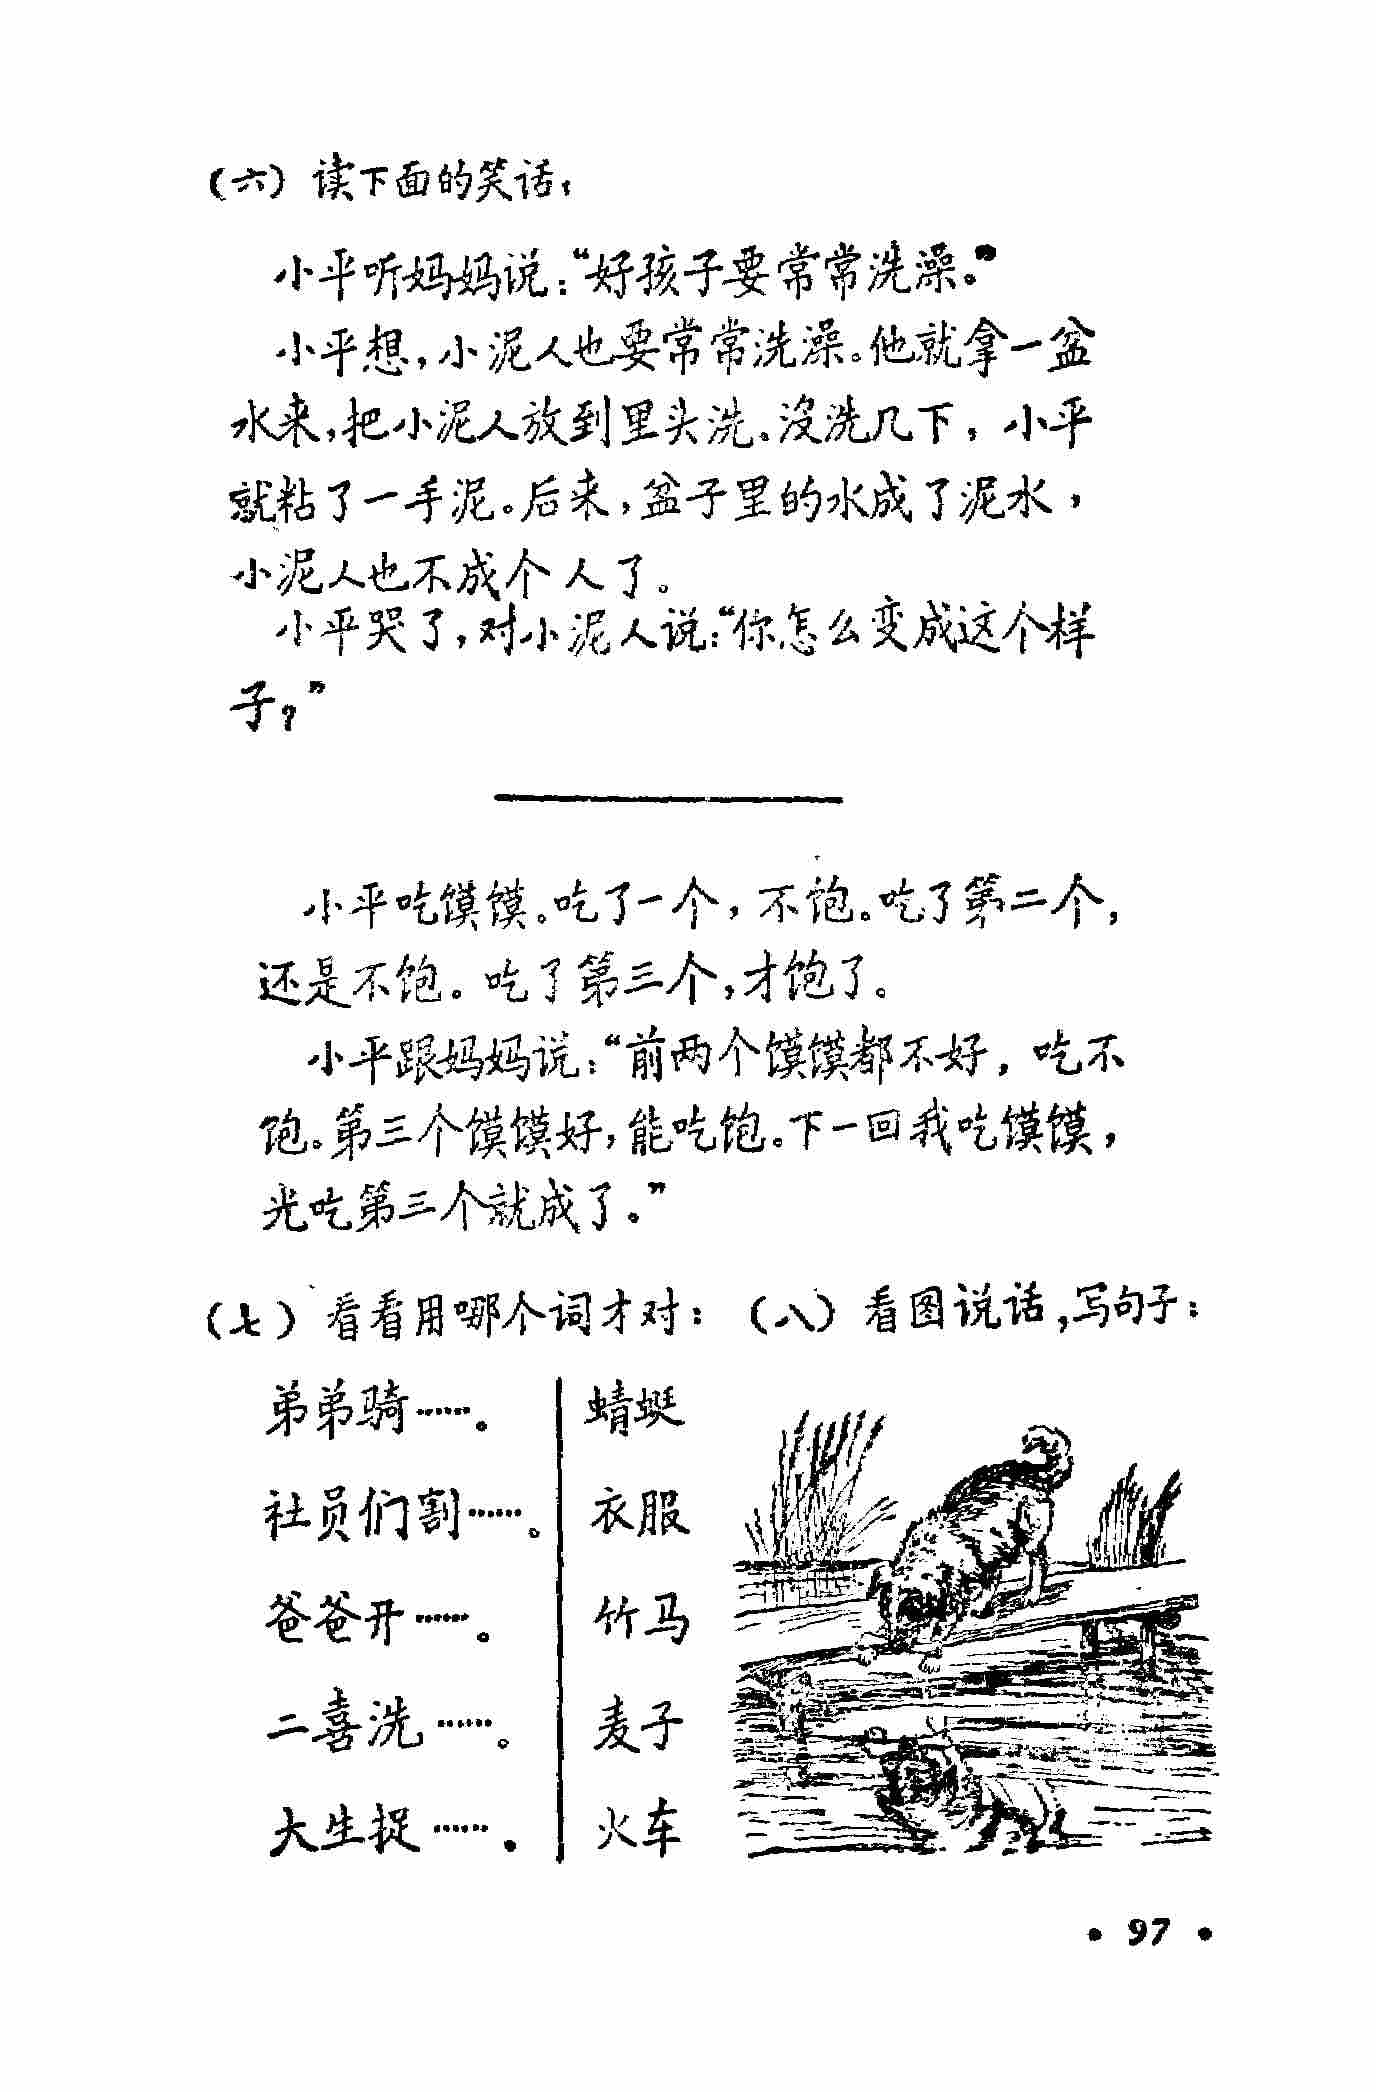 （六）读下面的笑话：
小平听妈妈说：“好孩子要常常洗澡。”
小平想，小泥人也要常常洗澡。他就拿一盆
水来，把小泥人放到里头洗。没洗几下，小平
就粘了一手泥。后来，盆子里的水成了泥水，
小泥人也不成个人了。
小平哭了，对小泥人说：“你怎么变成这个样
子？”
小平吃馍馍。吃了一个，不饱。吃了第二个，
还是不饱。吃了第三个，才饱了。
小平跟妈妈说：“前两个馍馍都不好，吃不
饱。第三个馍馍好，能吃饱。下一回我吃馍馍，
光吃第三个就成了。”
（七）看看用哪个词才对：
弟弟骑……。 蜻蜓
社员们割……。 衣服
爸爸开……。 竹马
二喜洗……。 麦子
大生捉……。 火车
（八）看图说话，写句子：
• 97 •